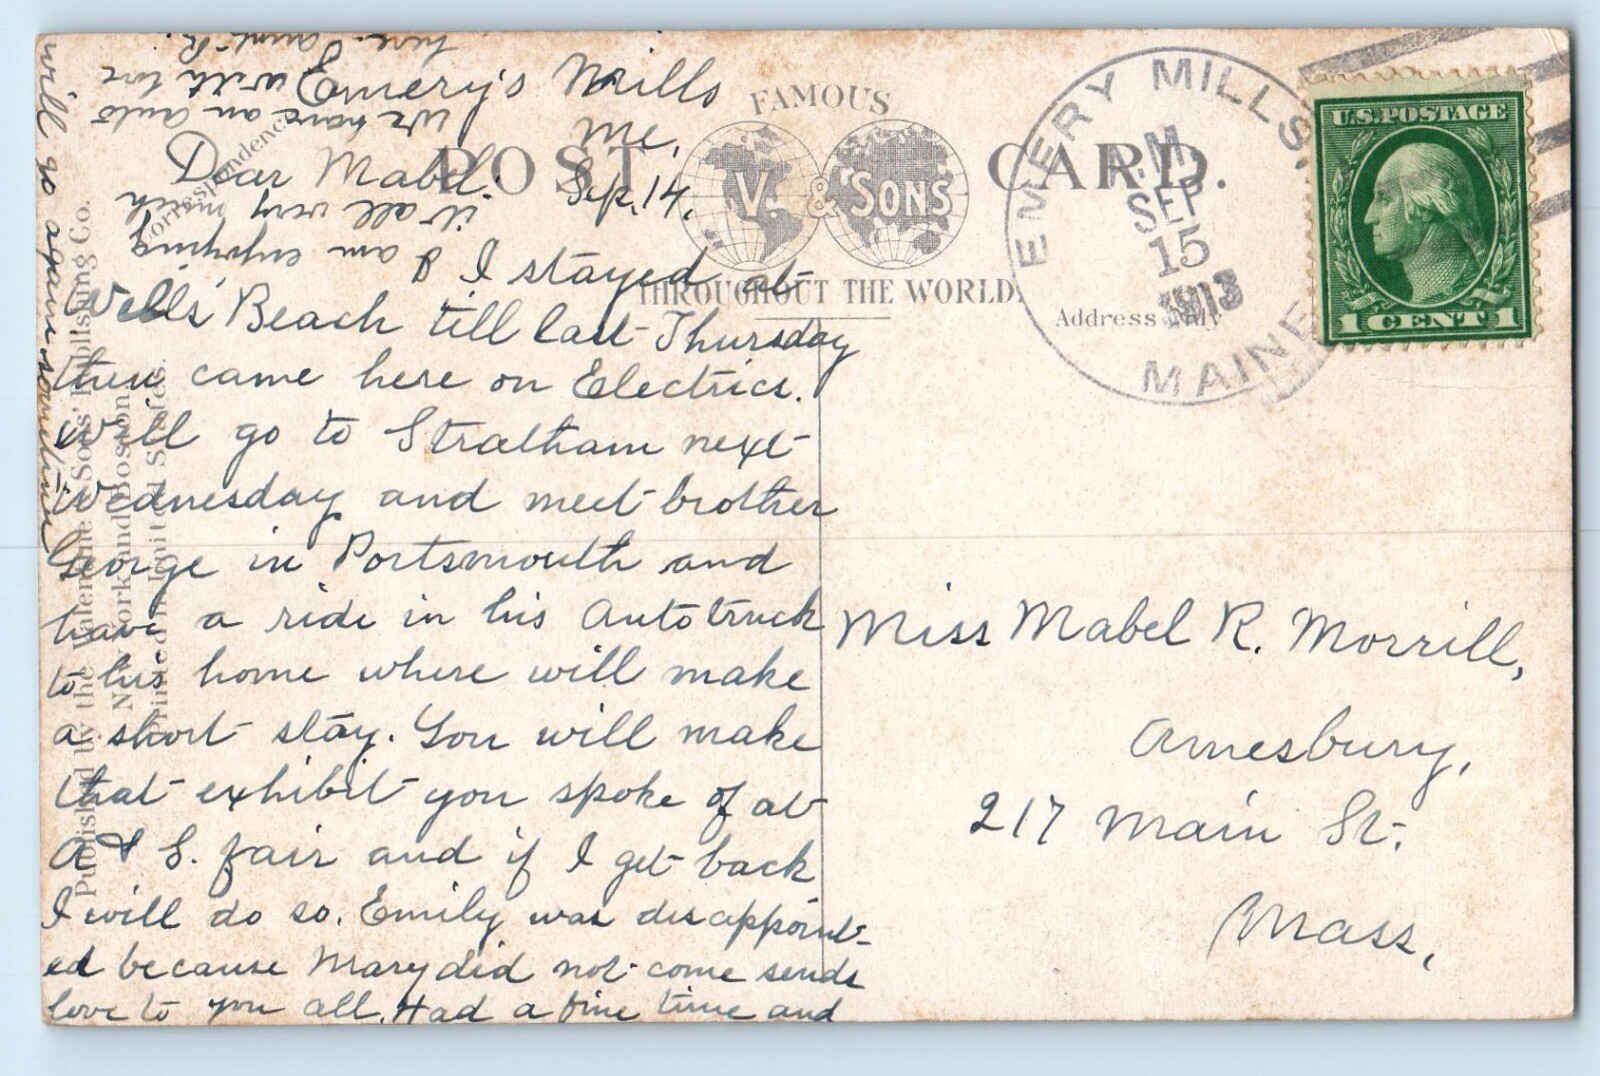 Emery's Mills
Me,
Sep. 14,
Dear Mabel:
I stayed at
Wells' Beach till last Thursday
then came here on Electrics.
Will go to Stratham next
Wednesday and meet brother
George in Portsmouth and
have a ride in his Auto truck
to his home where will make
a short stay. You will make
that exhibit you spoke of at
A & S. fair and if I get back
I will do so. Emily was disappoint-
ed because Mary did not come sends
love to you all. Had a fine time and
will go again sometime
I am enjoying
it all very much
We have an auto
here. Aunt R.
with love
FAMOUS
POST CARD.
V. & SONS
THROUGHOUT THE WORLD.
Correspondence
Address Only
Published by the Valentine & Sons' Publishing Co.
New York and Boston
Printed in United States.
EMERY MILLS,
A.M.
SEP
15
1913
MAINE
U.S. POSTAGE
1 CENT 1
Miss Mabel R. Morrill,
Amesbury,
217 Main St.
Mass.